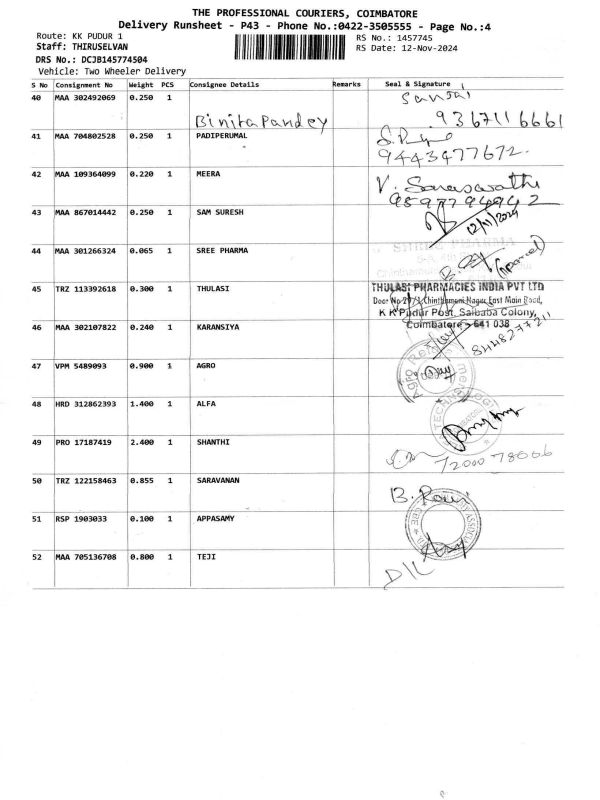 THE PROFESSIONAL COURIERS, COIMBATORE
Delivery Runsheet - P43 - Phone No.:0422-3505555 - Page No.:4
Route: KK PUDUR 1
Staff: THIRUSELVAN
DRS No.: DCJB145774504
Vehicle: Two Wheeler Delivery
RS No.: 1457745
RS Date: 12-Nov-2024
S No Consignment No Weight PCS Consignee Details Remarks Seal & Signature
40 MAA 302492069 0.250 1 Binita Pandey Sanjai
9367116661
41 MAA 704802528 0.250 1 PADIPERUMAL
9443477672.
42 MAA 109364099 0.220 1 MEERA V. Saraswathi
43 MAA 867014442 0.250 1 SAM SURESH 12/11/2024
44 MAA 301266324 0.065 1 SREE PHARMA SHREE PHARMA
45 TRZ 113392618 0.300 1 THULASI THULASI PHARMACIES INDIA PVT LTD
Door No 29/1, Chinthamani Nagar, East Main Road,
K K Pudur Post, Saibaba Colony,
Coimbatore - 641 038
46 MAA 302107822 0.240 1 KARANSIYA 8448277211
47 VPM 5489093 0.900 1 AGRO
48 HRD 312862393 1.400 1 ALFA
49 PRO 17187419 2.400 1 SHANTHI
50 TRZ 122158463 0.855 1 SARAVANAN
51 RSP 1903033 0.100 1 APPASAMY
52 MAA 705136708 0.800 1 TEJI D/L